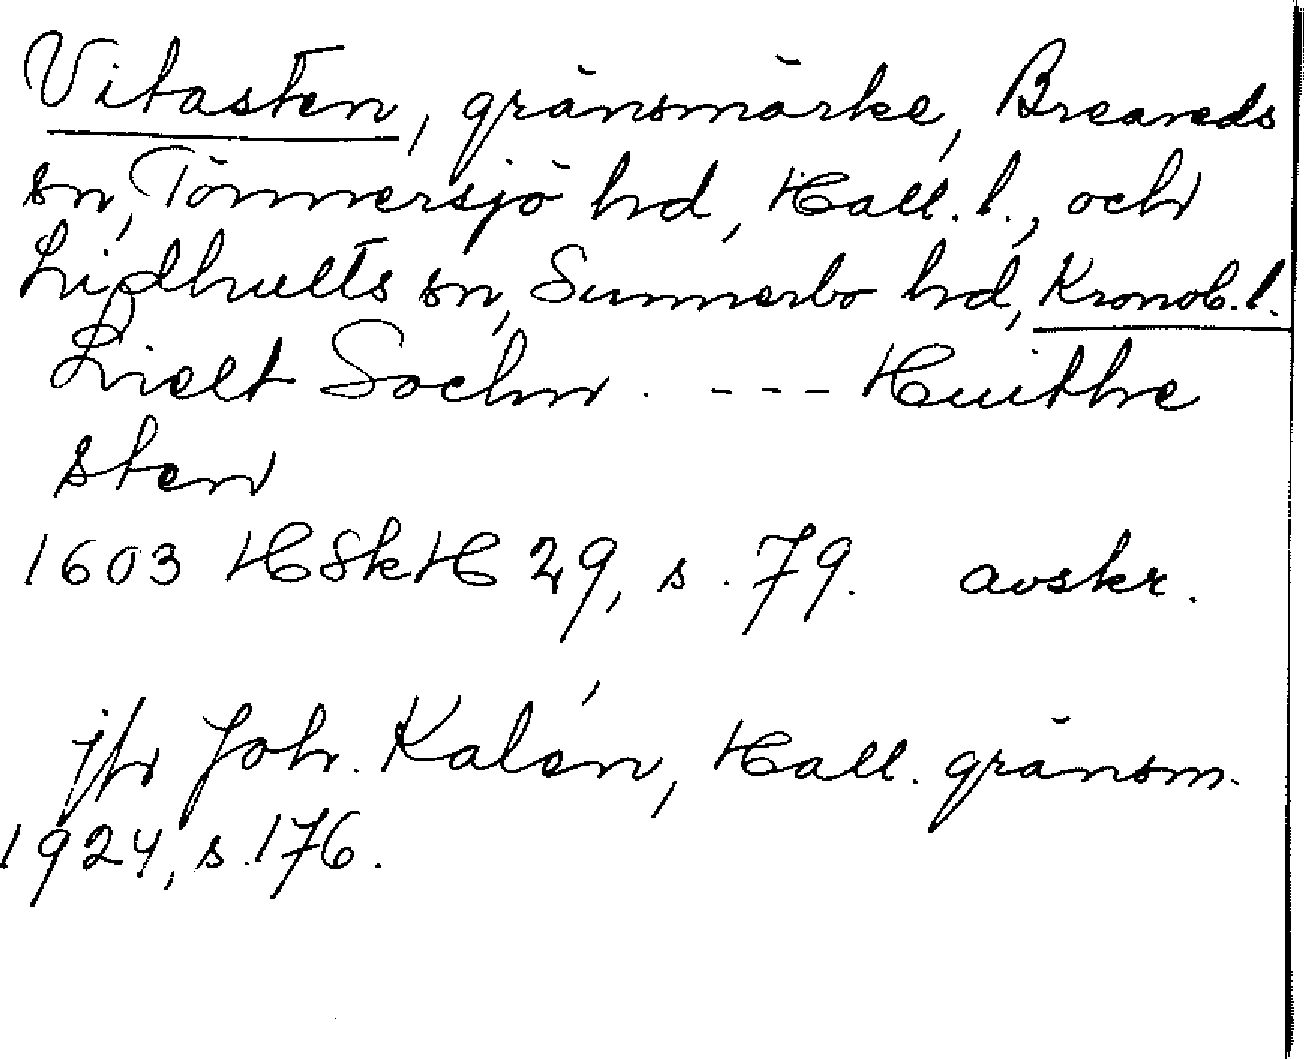 Vitasten, gränsmärke, Breareds
sn, Tönnersjö hd, Hall. l., och
Lidhults sn, Sunnerbo hd, Kronob. l.
Lielt Sochn. --- Huithe
sten
1603 HSkH 29, s. 79. avskr.
jfr Joh. Kalén, Hall. gränsm.
1924, s. 176.